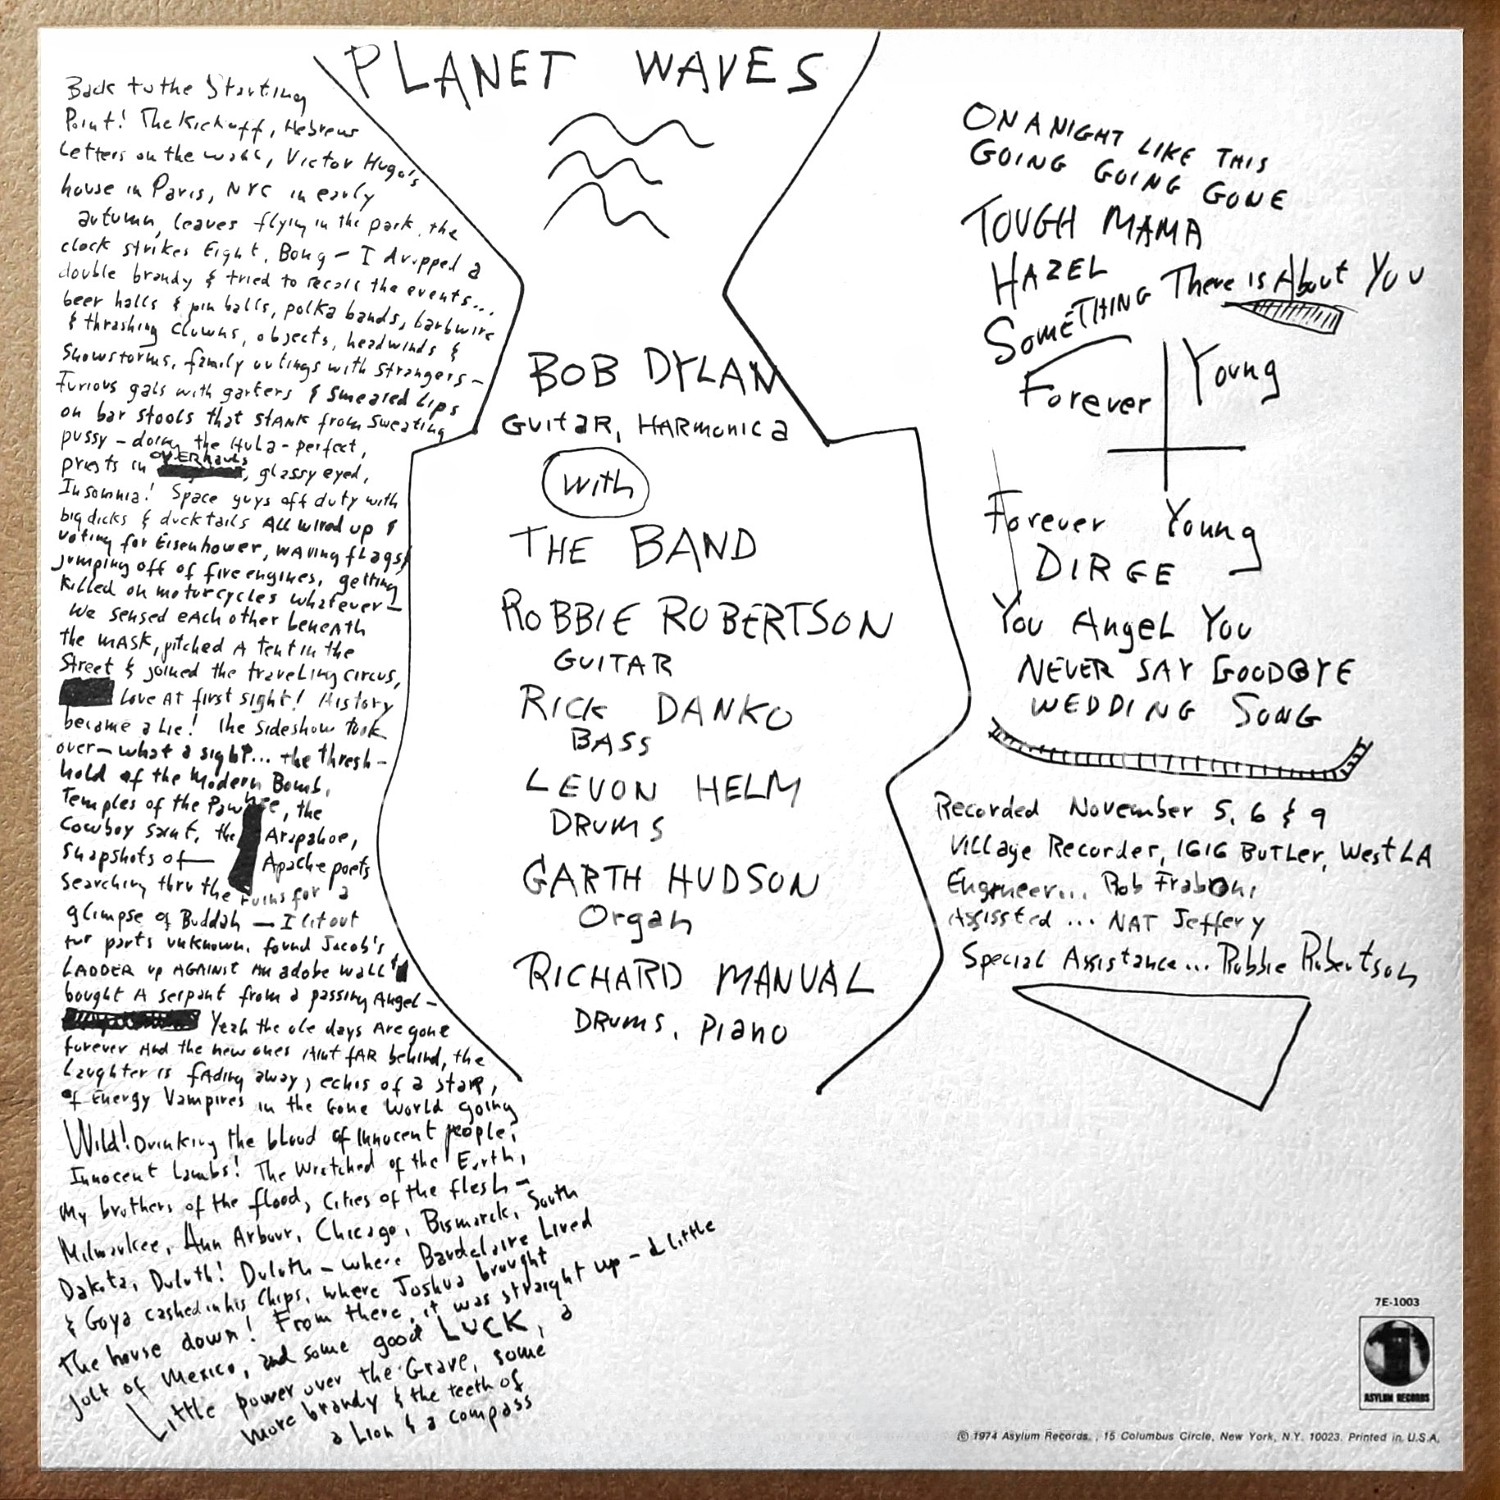 PLANET WAVES
Back to the Starting
Point! The Kickoff, Hebrew
Letters on the wall, Victor Hugo's
house in Paris, NYC in early
autumn, leaves flying in the park, the
clock strikes Eight, Bong – I dropped a
double brandy & tried to recall the events...
beer halls & pin balls, polka bands, barbwire
& thrashing clowns, objects, headwinds &
Snowstorms, family outings with strangers –
Furious gals with garters & smeared Lips
on bar stools that stank from sweating
pussy – doing the Hula – perfect,
priests in OVERhauls, glassy eyed,
Insomnia! Space guys off duty with
big dicks & duck tails All wired up &
voting for Eisenhower, waving flags &
jumping off of fire engines, getting
killed on motorcycles whatever –
We sensed each other beneath
the MASK, pitched A tent in the
Street & joined the traveling circus,
Love At first sight! History
became a Lie! The sideshow took
over – what a sight... the thresh-
hold of the Modern Bomb,
Temples of the Pawnee, the
Cowboy saint, the Arapahoe,
Snapshots of Apache poets
searching thru the ruins for a
glimpse of Buddah – I lit out
for parts unknown, found Jacob's
LADDER up AGAINST An adobe wall &
bought A serpant from a passing Angel –
Yeah the ole days Are gone
forever And the new ones Aint fAR behind, the
Laughter is fAding away, echos of a staR,
of Energy Vampires in the Gone World going
Wild! Drinking the blood of Innocent people,
Innocent Lambs! The Wretched of the Earth,
My brothers of the flood, Cities of the flesh –
Milwaukee, Ann Arbour, Chicago, Bismarck, South
Dakota, Duluth! Duluth – where Baudelaire Lived
& Goya cashed in his Chips, where Joshua brought
the house down! From there, it was straight up – a little
jolt of Mexico, and some good LUCK, a
Little power over the Grave, some
more brandy & the teeth of
a Lion & a compass
BOB DYLAN
GUITAR, HARMONICA
with
THE BAND
ROBBIE ROBERTSON
GUITAR
RICK DANKO
BASS
LEVON HELM
DRUMS
GARTH HUDSON
Organ
RICHARD MANUAL
DRUMS, Piano
ON A NIGHT LIKE THIS
GOING GOING GONE
TOUGH MAMA
HAZEL
SOMETHING There is About You
Forever Young
Forever Young
DIRGE
You Angel You
NEVER SAY GOODBYE
WEDDING SONG
Recorded November 5, 6 & 9
Village Recorder, 1616 BUTLER, West LA
Engineer... Rob Fraboni
Assissted ... NAT Jeffery
Special Assistance... Robbie Robertson
7E-1003
ASYLUM RECORDS
© 1974 Asylum Records, , 15 Columbus Circle, New York, N.Y. 10023. Printed in U.S.A.